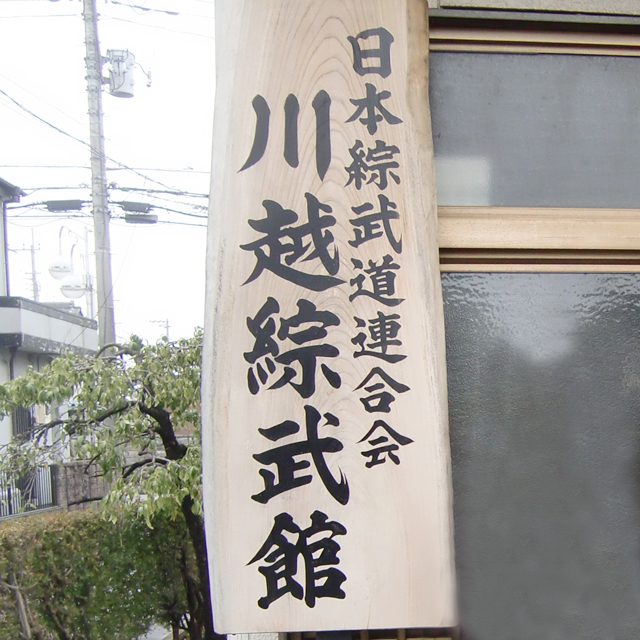 日本綜武道連合会
川越綜武館